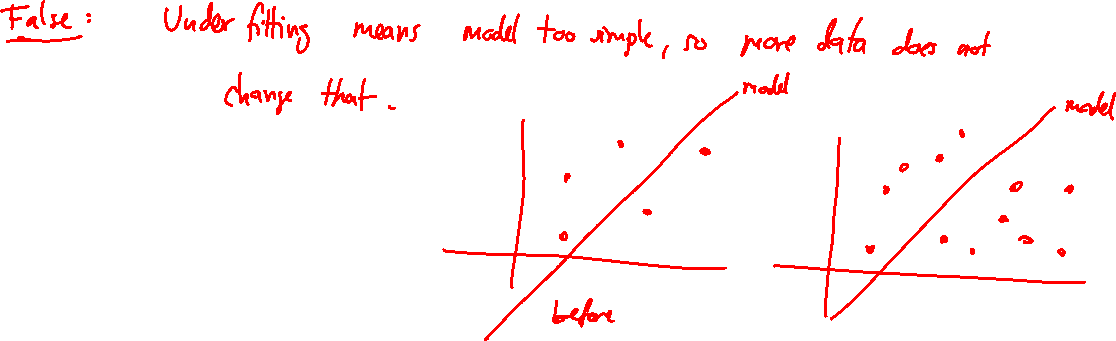 False: Under fitting means model too simple, so more data does not
change that.
model
model
before